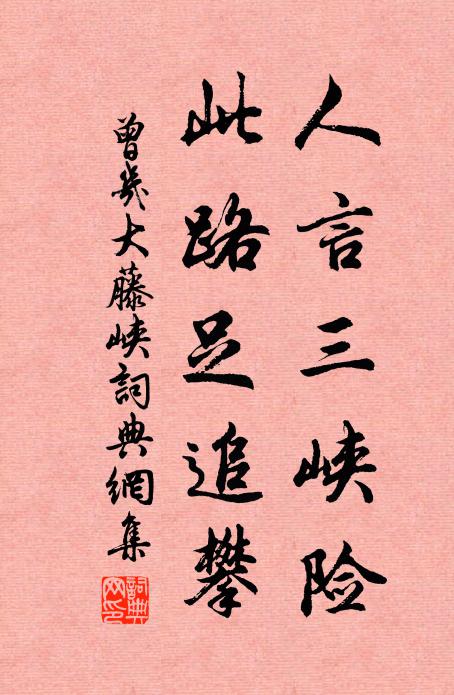 人言三峡险
此路足追攀
曾几大藤峡詞典網集
詞典網印